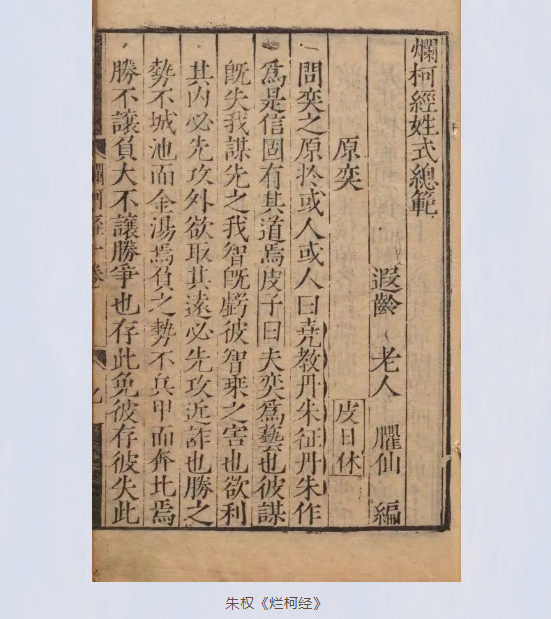 爛柯經姓式總範
遐齡老人 臞仙 編
原奕 皮日休
問奕之原扵或人或人曰堯教丹朱征丹朱作
爲是信固有其道焉皮子曰夫奕爲藝也彼謀
旣失我謀先之我智旣虧彼智乘之害也欲利
其内必先攻外欲取其遠必先攻近詐也勝之
勢不城池而金湯焉負之勢不兵甲而奔北焉
勝不讓負大不讓勝爭也存此免彼存彼失此
爛柯經
朱权《烂柯经》